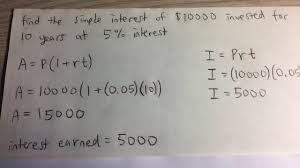 find the simple interest of $10000 invested for
10 years at 5% interest
A = P(1+rt)
A = 10000(1+(0.05)(10))
A = 15000
interest earned = 5000
I = Prt
I = (10000)(0.05)(
I = 5000